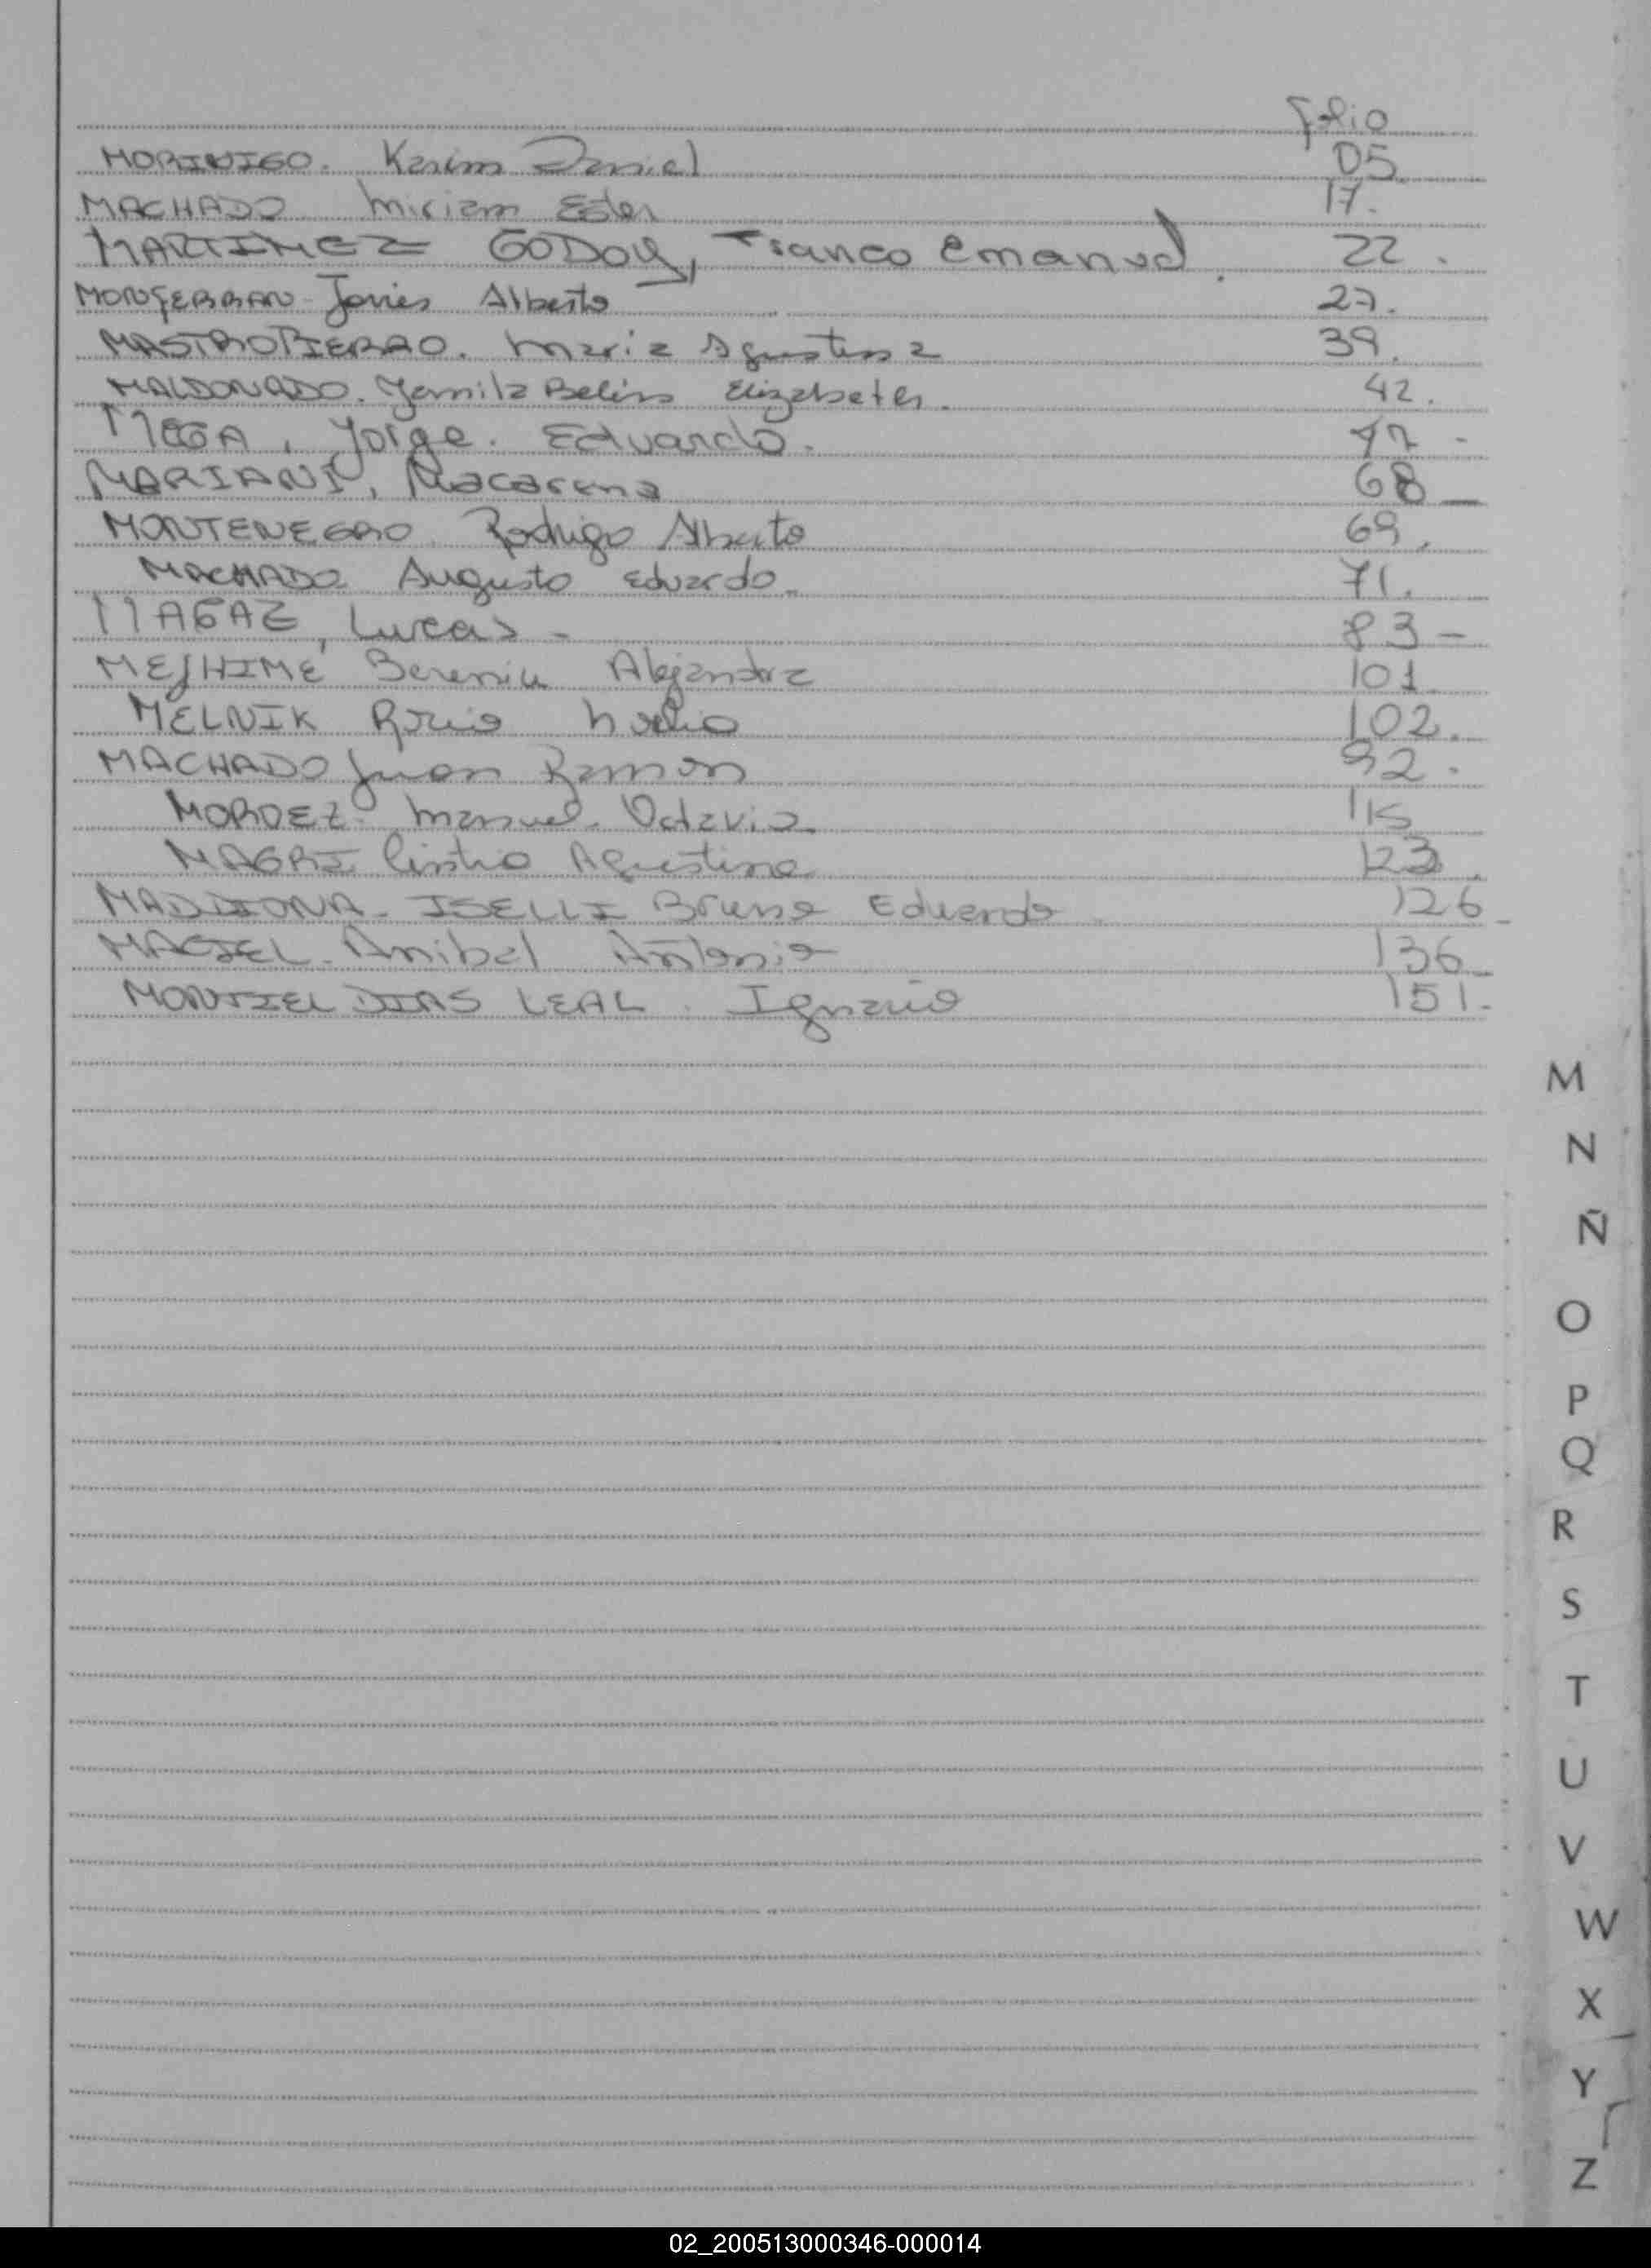 Folio
MORINIGO. Karim Daniel 05
MACHADO Miriam Ester 17.
MARTINEZ GODOY, Franco Emanuel. 22.
MONFERRAN Javier Alberto 27.
MASTROPIERRO. Maria Agustina 39.
MALDONADO. Yamila Belén Elizabeth. 42.
MEZA, Jorge. Eduardo. 47-
MARIANI, Macarena 68_
MONTENEGRO Rodrigo Alberto 69.
MACHADO Augusto Eduardo 71.
MAGAZ, Lucas - 83-
MEJHIME Berenice Alejandra 101
MELNIK Rocio 102.
MACHADO Juan Ramon 92.
Manuel Octavio 115
MAGRI Cinthia Agustina 123.
MADDIONA - ISELLI Bruno Eduardo 126_
MACIEL - Anibal Antonio 136_
MONTIEL DIAS LEAL. Ignacio 151.
M
N
Ñ
O
P
Q
R
S
T
U
V
W
X
Y
Z
02_200513000346-000014